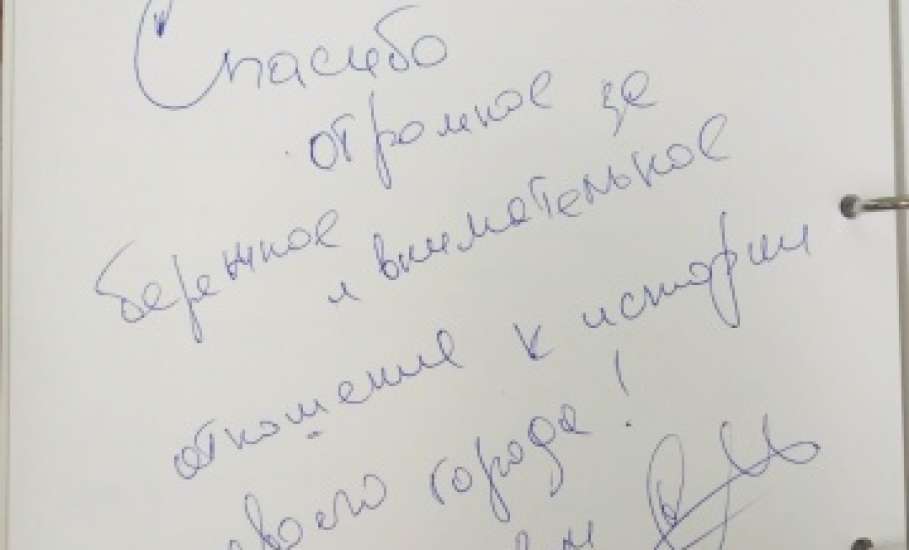 Спасибо
огромное за
бережное
и внимательное
отношение к истории
своего города!